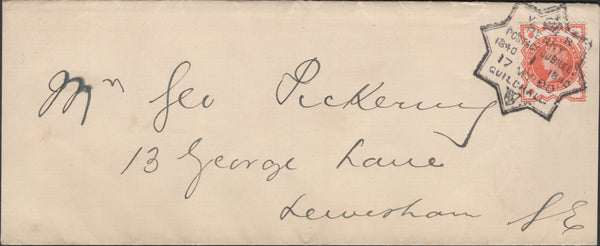 Mr Geo Pickering
13 George Lane
Lewisham S.E
V R
POSTAGE JUBILEE
1840
17 MY 90
GUILDHALL